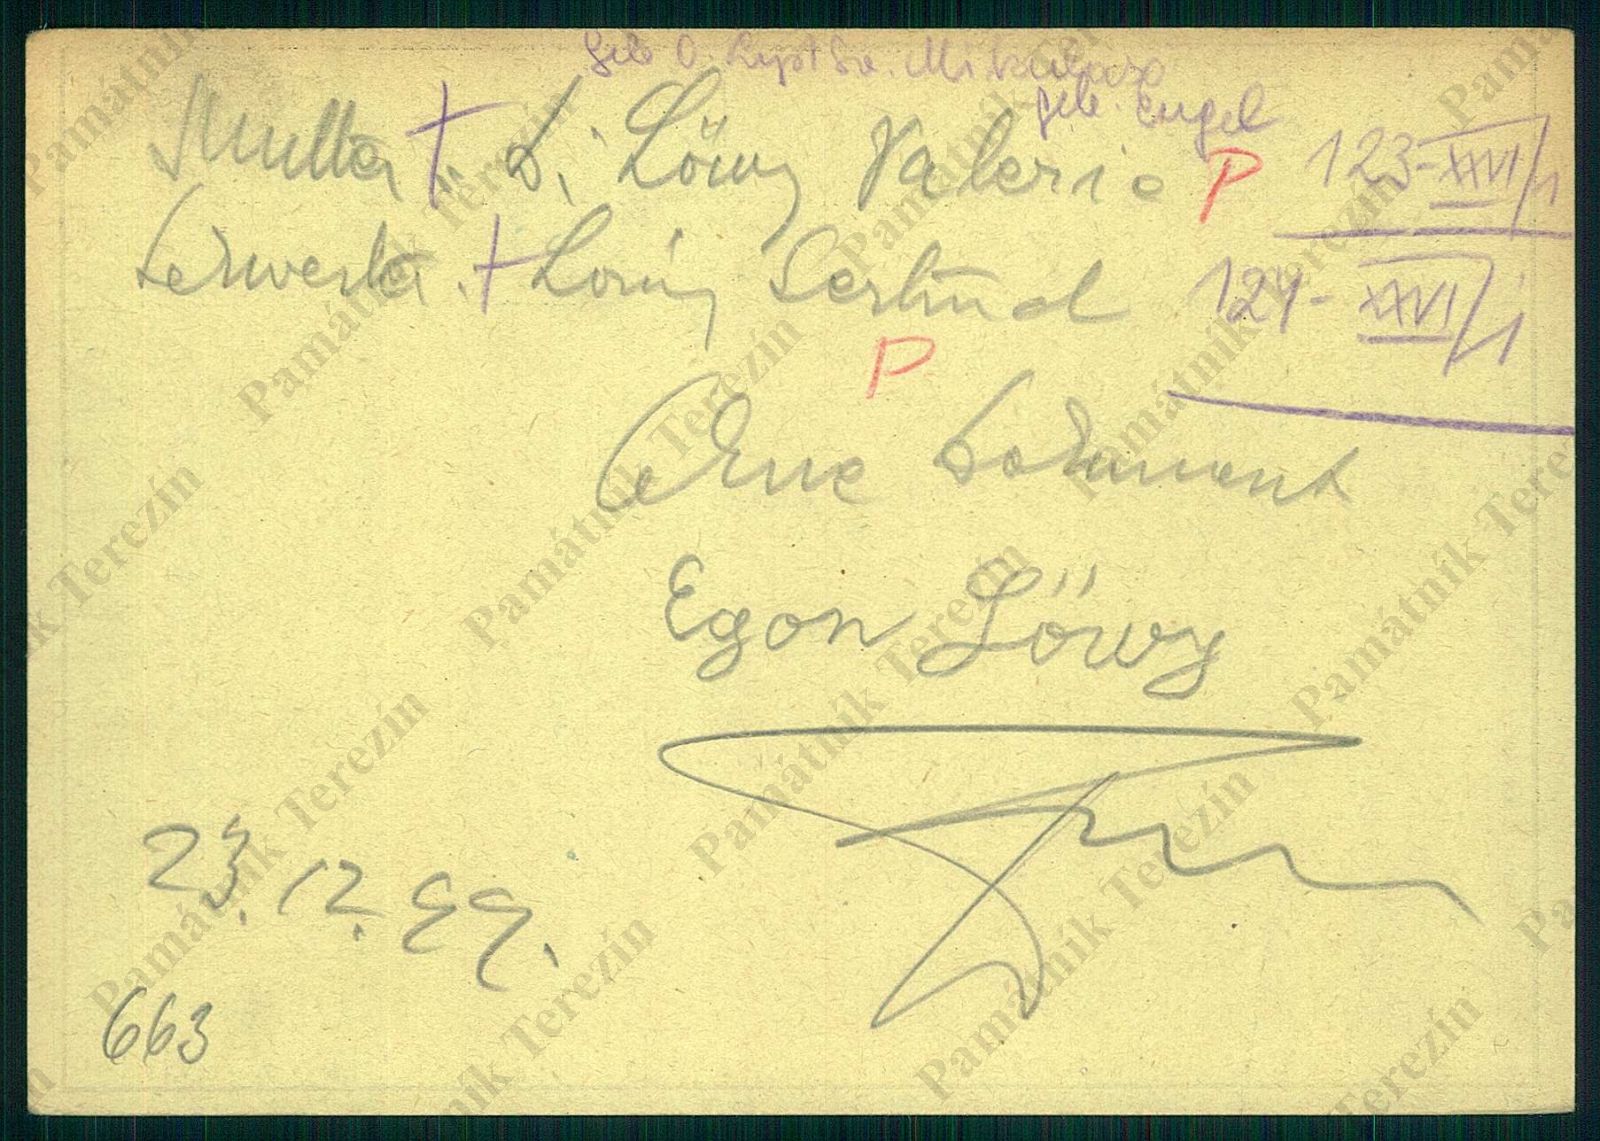 geb. O. Lipt Sv. Mikulas
geb. Engel
Mutter † Löwy Valerie P 123-XXVI/1
† Löwy Gertrud 124-XXVI/1
P
Ohne Dokument
Egon Löwy
23.12.44.
663
Památník Terezín